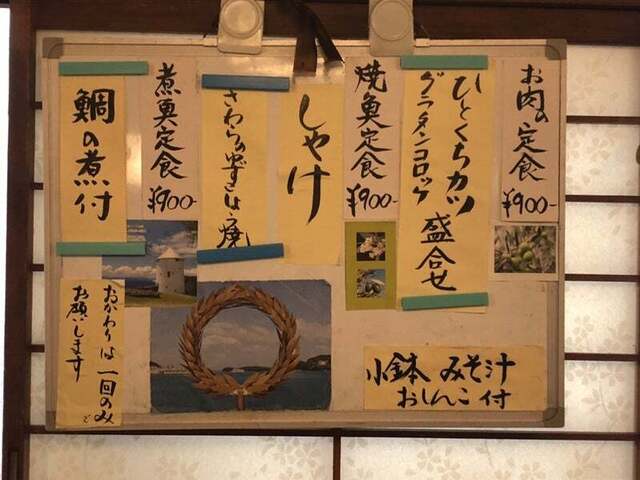 お肉の定食
¥900-
ひとくちカツ
グラタンコロッケ
盛合せ
焼魚定食
¥900-
しゃけ
さわらのゆずこしょう焼
煮魚定食
¥900-
鯛の煮付
小鉢 みそ汁
おしんこ付
おかわりは一回のみで
お願いします